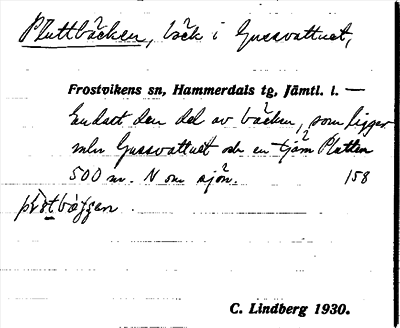 Pluttbäcken, bäck i Gussvattnet,
Frostvikens sn, Hammerdals tg, Jämtl. l. —
Endast den del av bäcken, som ligger
mln Gussvattnet och en tjärn Plutten
500 m. N om sjön. 158
C. Lindberg 1930.